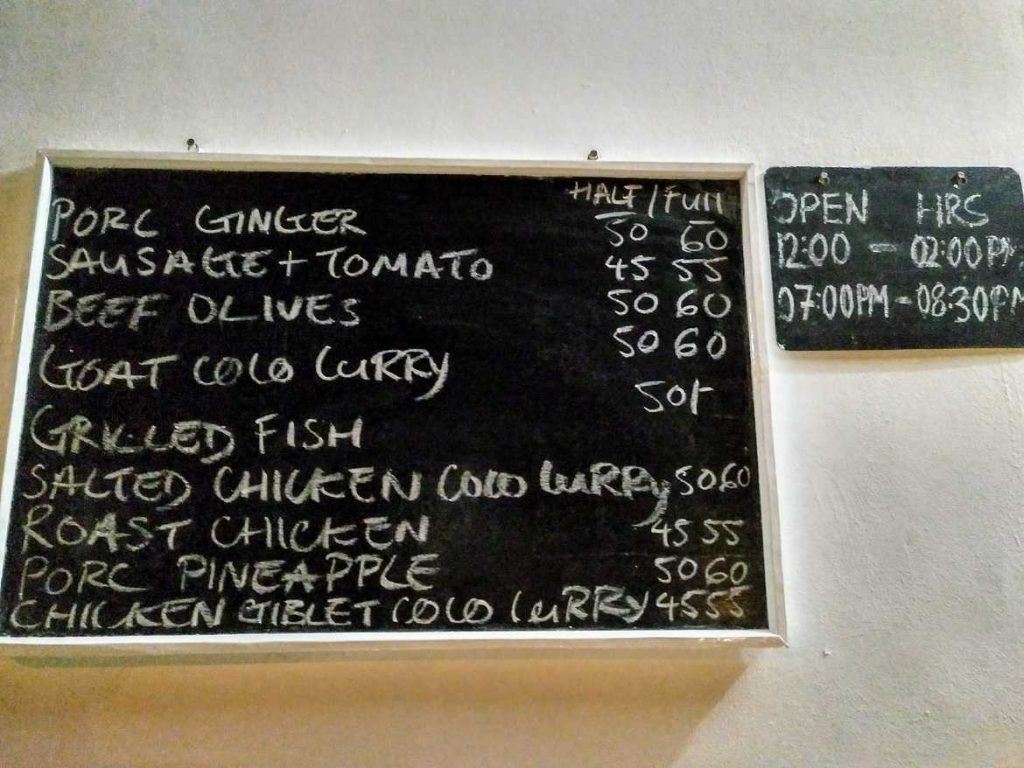 HALF/FULL
PORC GINGER 50 60
SAUSAGE + TOMATO 45 55
BEEF OLIVES 50 60
GOAT COCO CURRY 50 60
GRILLED FISH 50/-
SALTED CHICKEN COCO CURRY 50 60
ROAST CHICKEN 45 55
PORC PINEAPPLE 50 60
CHICKEN GIBLET COCO CURRY 45 55
OPEN HRS
12:00 - 02:00PM
07:00PM - 08:30PM